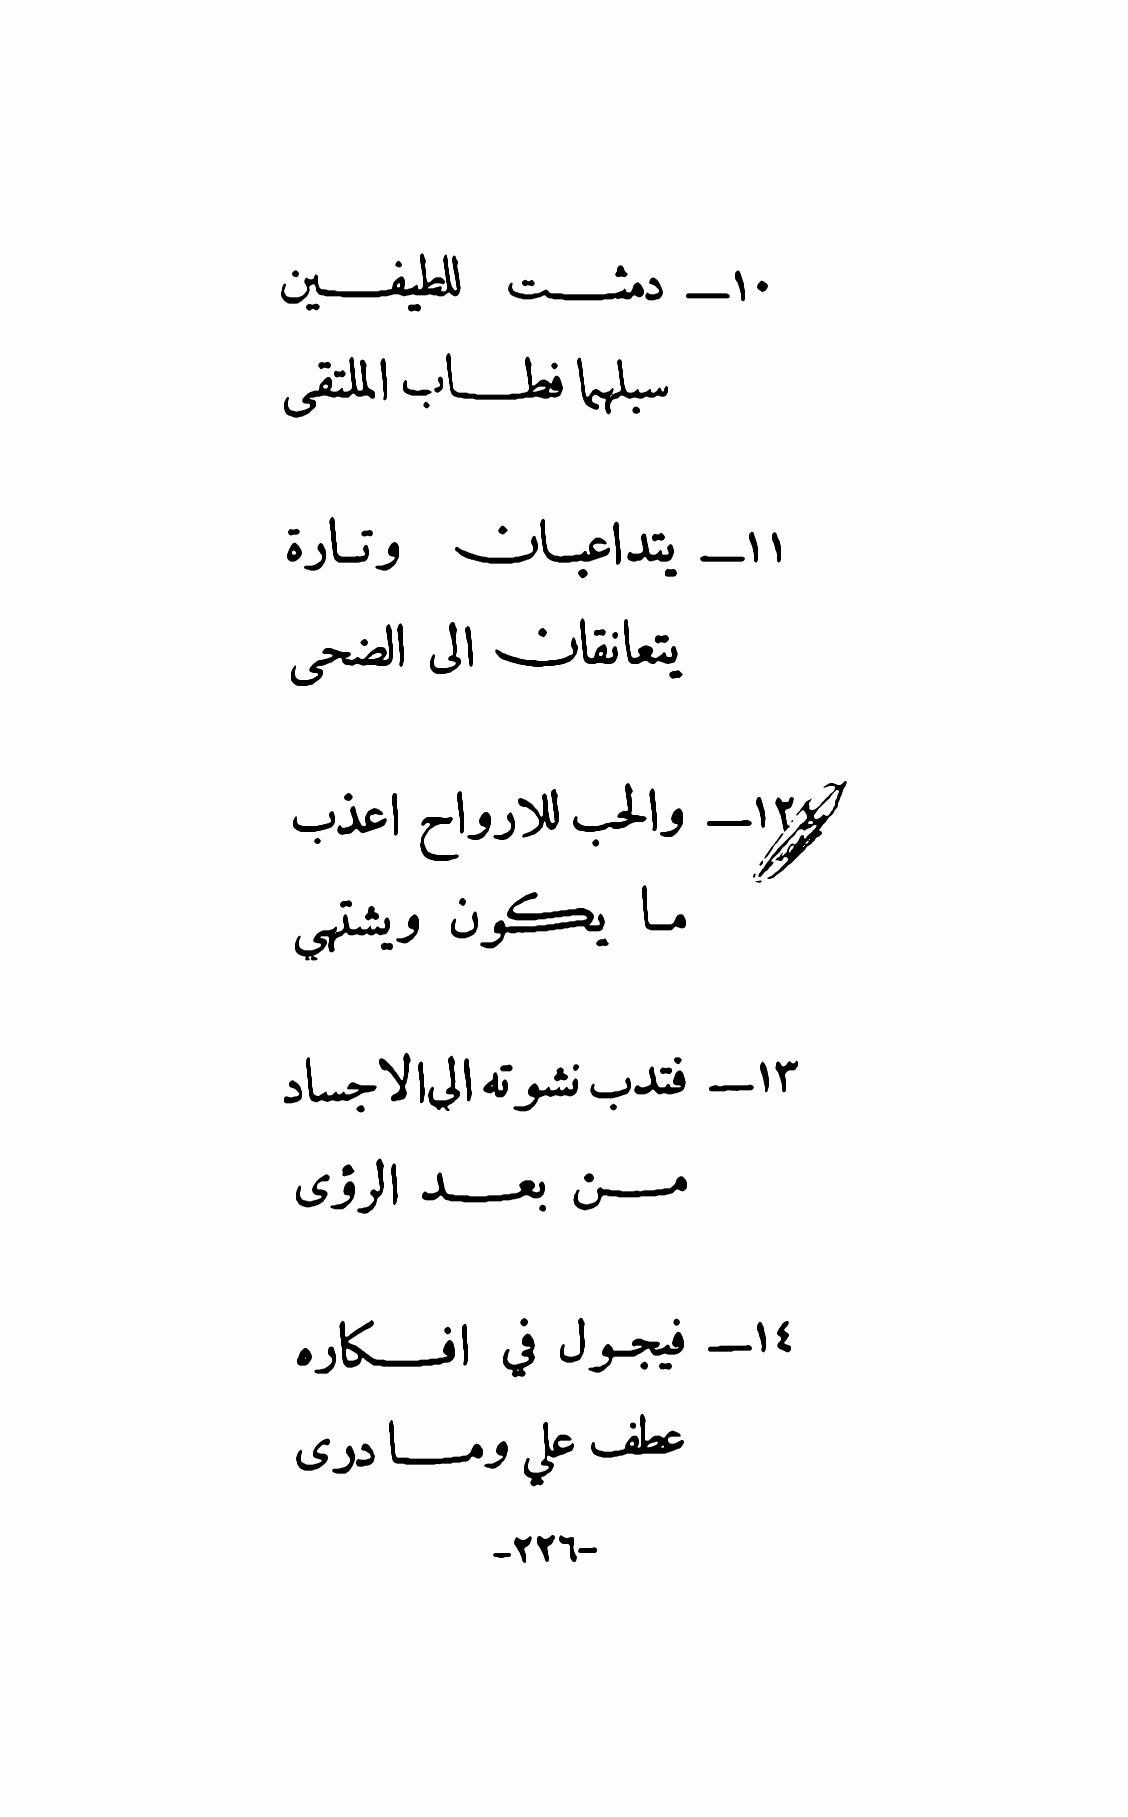 ١٠ــ دمثــت للطيفــين
سبلهما فطــاب الملتقى
١١ــ يتداعبـان وتـارة
يتعانقان الى الضحى
١٢ــ والحب للارواح اعذب
مـا يكون ويشتهي
١٣ــ فتدب نشوته الي الاجساد
مــن بعــد الرؤى
١٤ــ فيجـول في افــكاره
عطف علي ومــا درى
-٢٢٦-